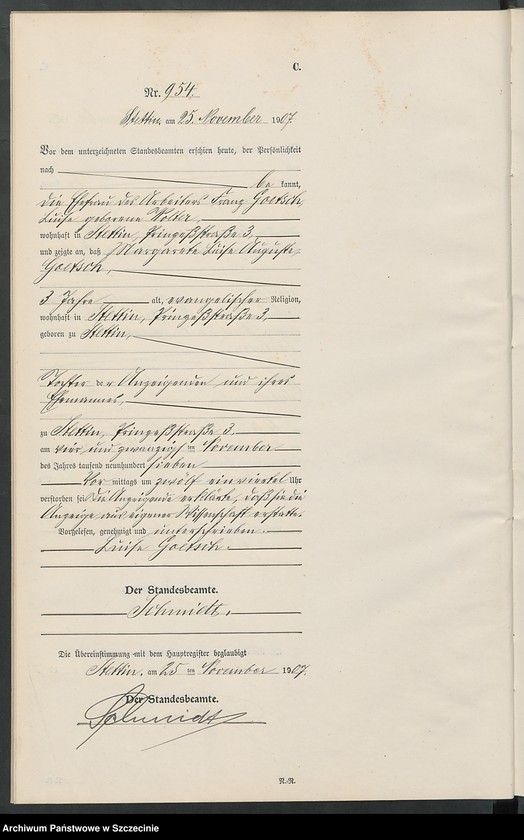 C.
Nr. 954.
Stettin, am 25. November 1907.
Vor dem unterzeichneten Standesbeamten erschien heute, der Persönlichkeit
nach
be kannt,
die Ehefrau des Arbeiters Franz Goetsch,
Luise geborene Wolter,
wohnhaft in Stettin, Prinzeßstraße 3,
und zeigte an, daß Margarete Luise Auguste
Goetsch,
3 Jahre alt, evangelischer Religion,
wohnhaft in Stettin, Prinzeßstraße 3,
geboren zu Stettin,
Tochter der Anzeigenden und ihres
Ehemannes,
zu Stettin, Prinzeßstraße 3,
am vier und zwanzigsten November
des Jahres tausend neunhundert sieben
Vor mittags um zwölf einviertel Uhr
verstorben sei. Die Anzeigende erklärte, daß sie die
Anzeige aus eigener Wissenschaft erstatte.
Vorgelesen, genehmigt und unterschrieben
Luise Goetsch.
Der Standesbeamte.
Schmidt.
Die Übereinstimmung mit dem Hauptregister beglaubigt
Stettin, am 25 ten November 1907.
Der Standesbeamte.
Schmidt
R.-R.
Archiwum Państwowe w Szczecinie